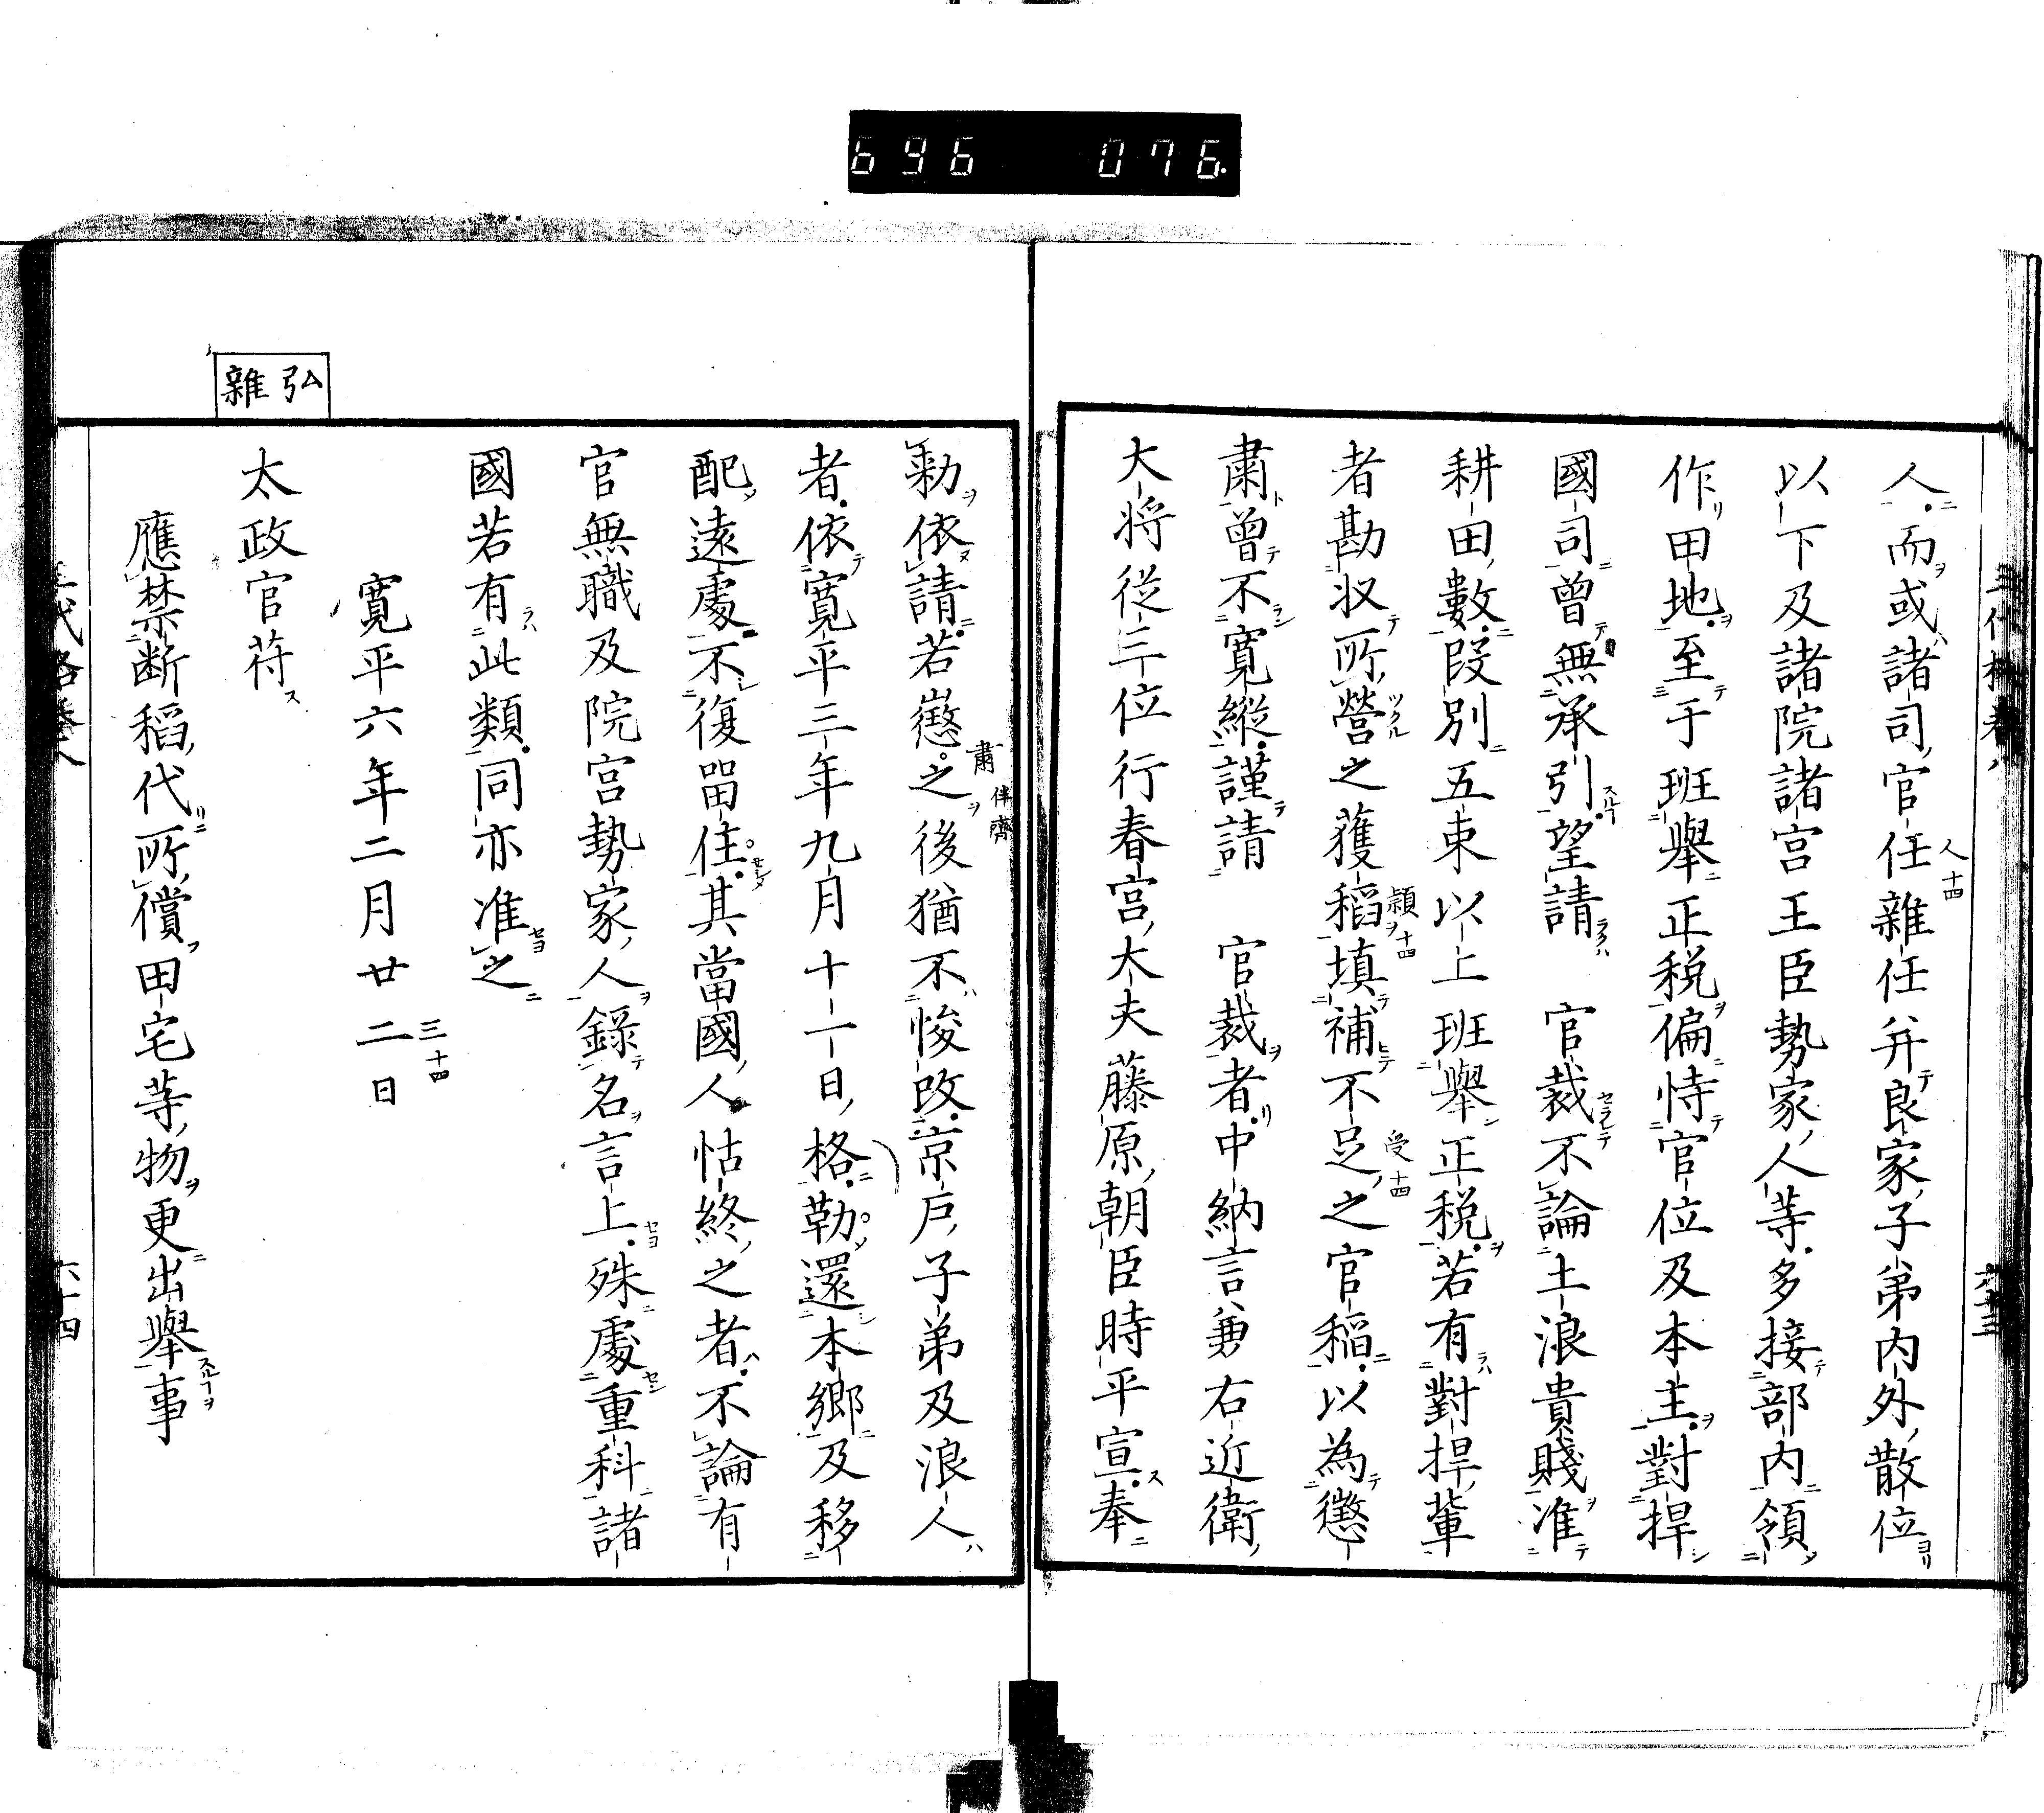 696 076
人而或諸司官任雜任并良家子弟内外散位
以下及諸院諸宮王臣勢家人等多接部内領
作田地至于班舉正税偏恃官位及本主對捍
國司曾無承引望請 官裁不論土浪貴賤准
耕田數段別五束以上班舉正税若有對捍輩
者勘収所營之獲稻填補不足之官稻以為懲
肅曾不寛縱謹請 官裁者中納言兼右近衛
大将從三位行春宮大夫藤原朝臣時平宣奉
勅依請若懲之後猶不悛改京戸子弟及浪人
者依寛平三年九月十一日格勒還本郷及移
配遠處不復留住其當國人怙終之者不論有
官無職及院宮勢家人錄名言上殊處重科諸
國若有此類同亦准之
寛平六年二月廿二日
弘雜
太政官符
應禁断稻代所償田宅等物更出舉事
六十四